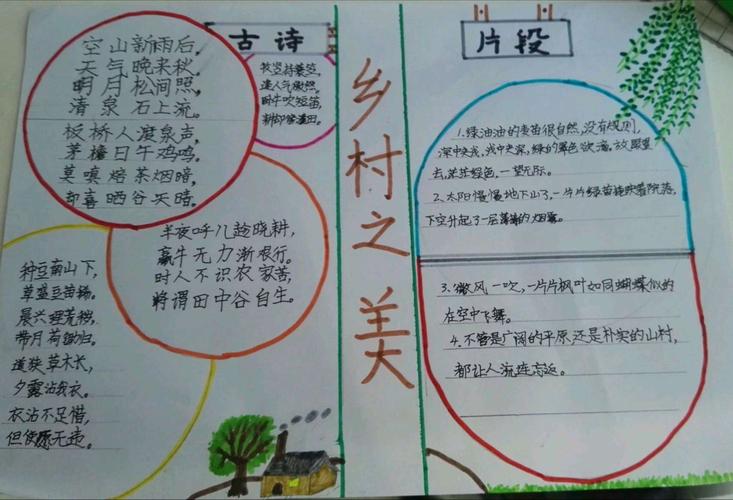 古诗
空山新雨后，
天气晚来秋。
明月松间照，
清泉石上流。
板桥人渡泉声，
茅檐日午鸡鸣。
莫嗔焙茶烟暗，
却喜晒谷天晴。
牧竖持蓑笠，
逢人气傲然。
卧牛吹短笛，
耕却傍溪田。
半夜呼儿趁晓耕，
羸牛无力渐艰行。
时人不识农家苦，
将谓田中谷自生。
种豆南山下，
草盛豆苗稀。
晨兴理荒秽，
带月荷锄归。
道狭草木长，
夕露沾我衣。
衣沾不足惜，
但使愿无违。
乡村之美
片段
1.绿油油的麦苗很自然，没有规则，
深中夹浅，浅中夹深，绿的
去，茫茫绿色，一望无际。
2.太阳慢慢地下山了，一片片绿苗
下空升起了一层薄薄的烟雾。
3.微风一吹，一片片枫叶如同蝴蝶似的
在空中飞舞。
4.不管是广阔的平原，还是朴实的山村，
都让人流连忘返。